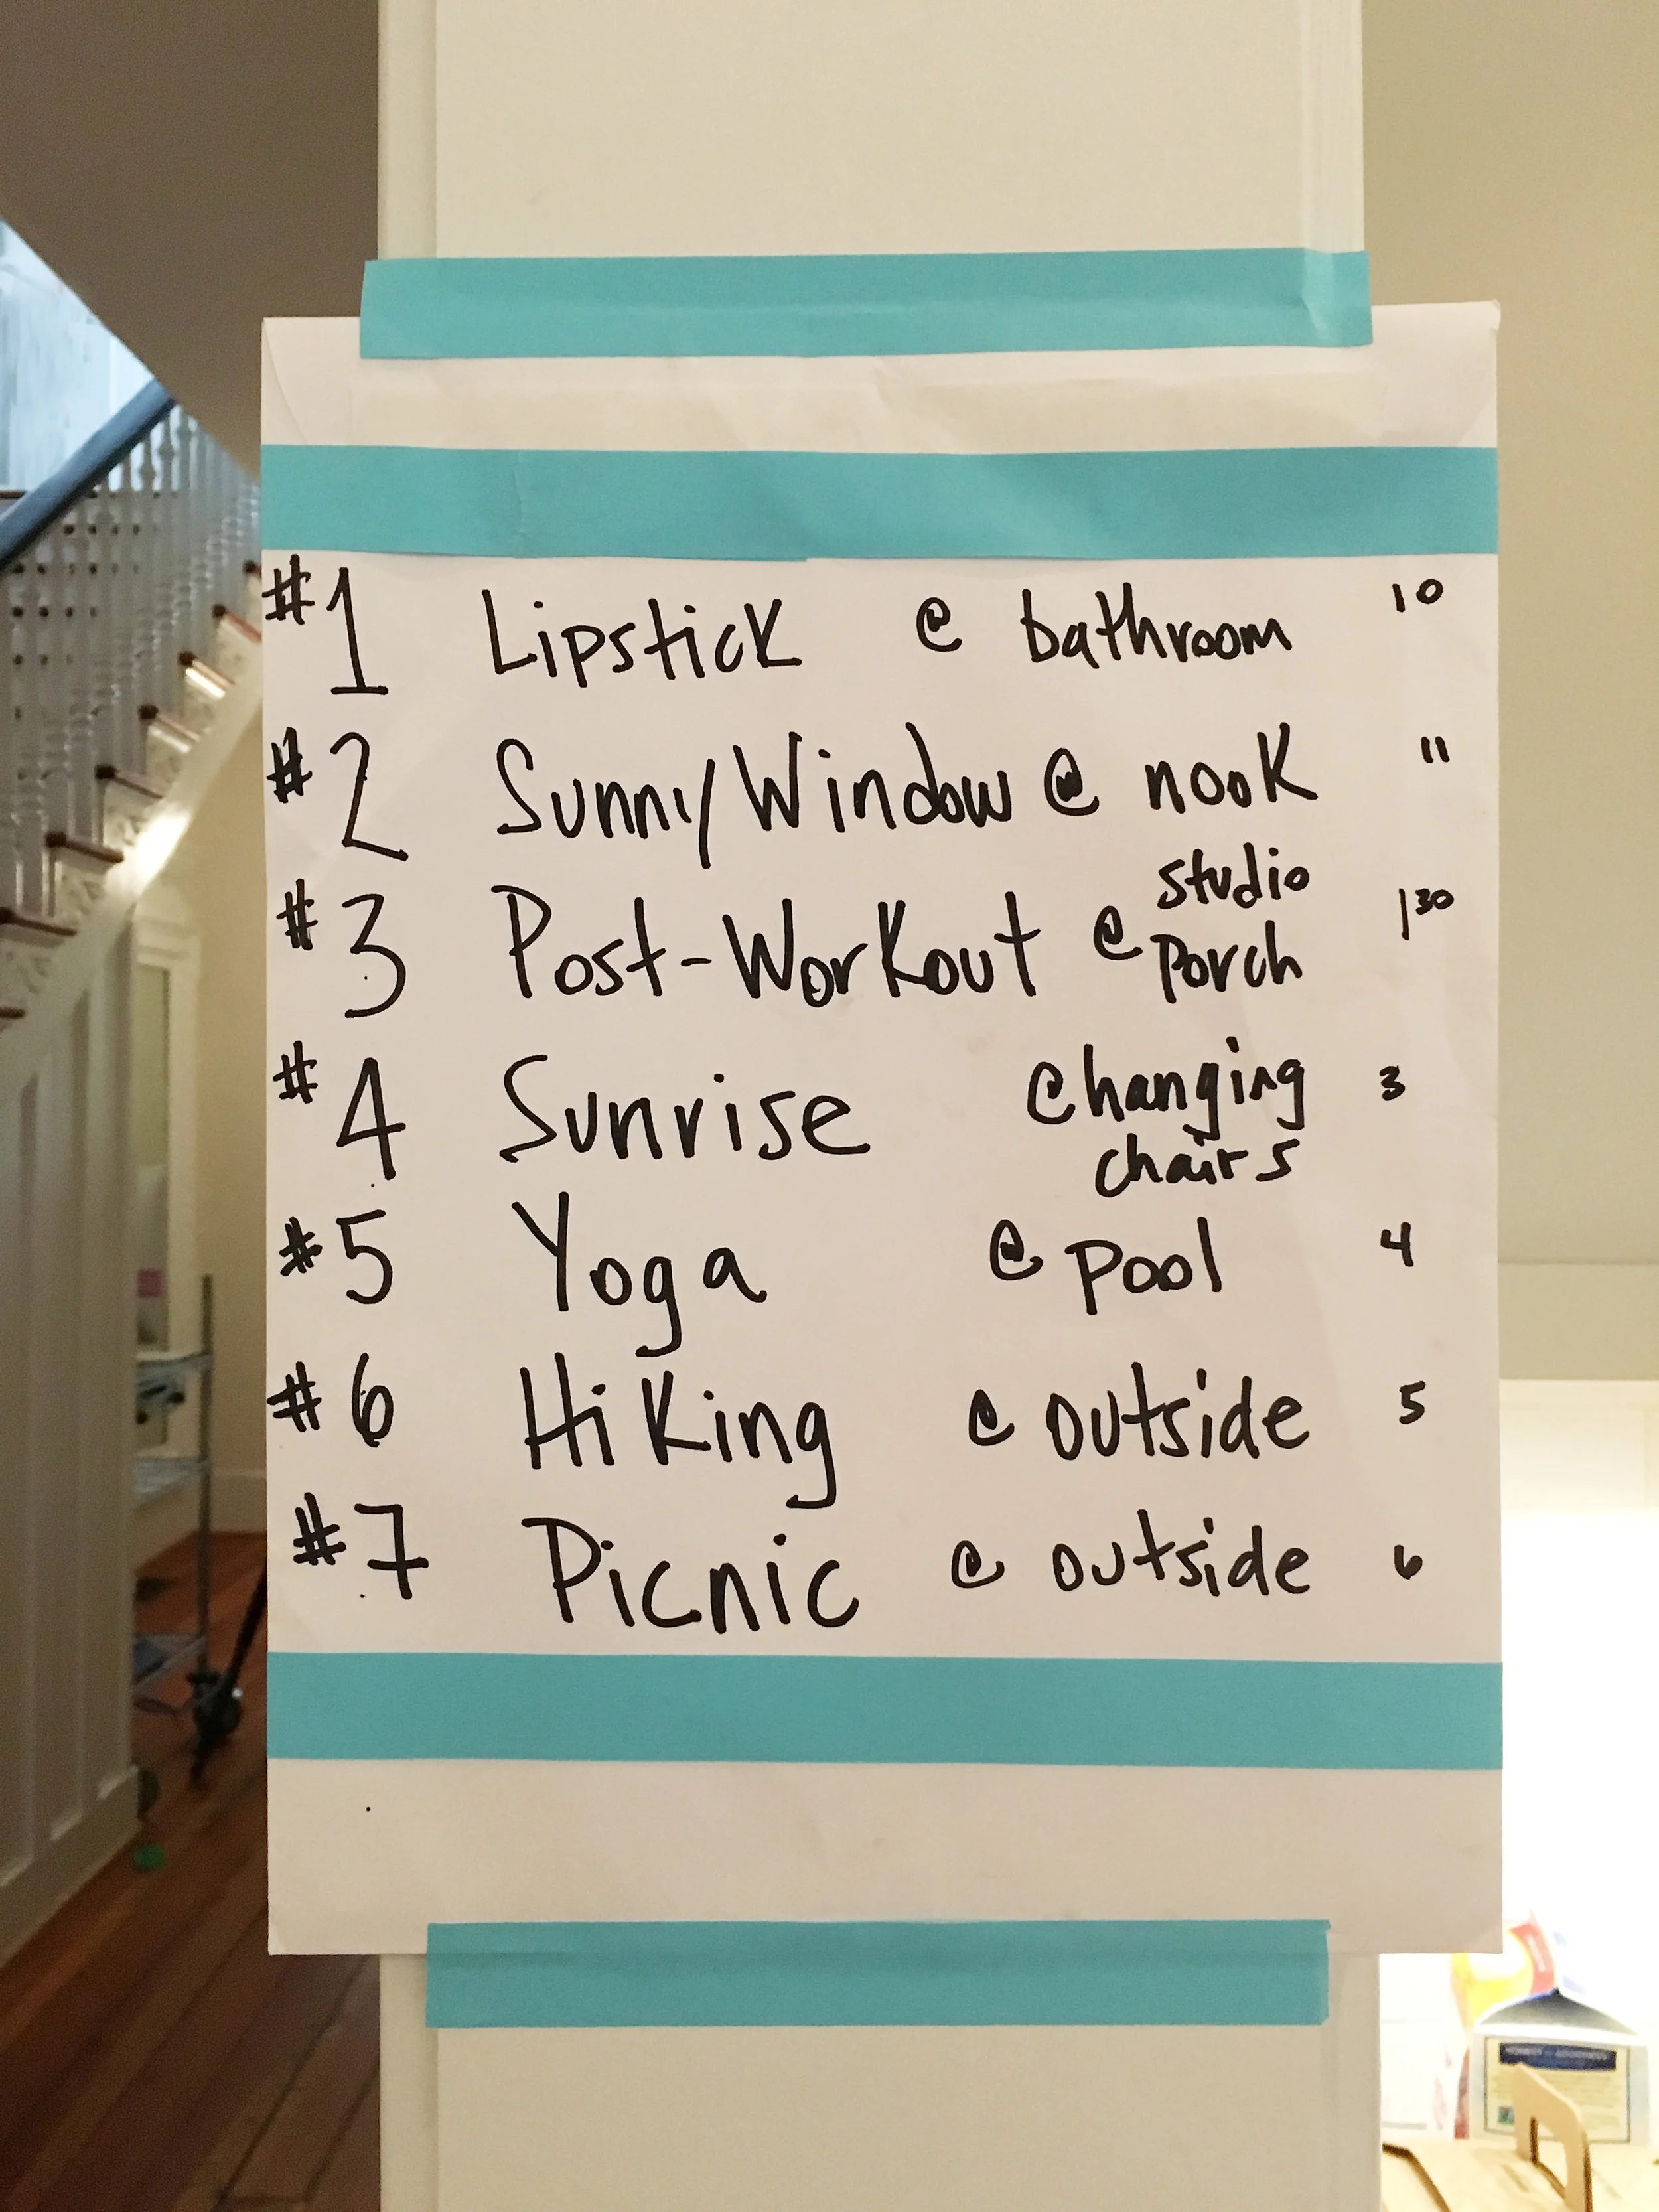 #1 Lipstick @ bathroom 10
#2 Sunny Window @ nook 11
#3 Post-Workout @ studio porch 130
#4 Sunrise @ changing chairs 3
#5 Yoga @ pool 4
#6 Hiking @ outside 5
#7 Picnic @ outside 6